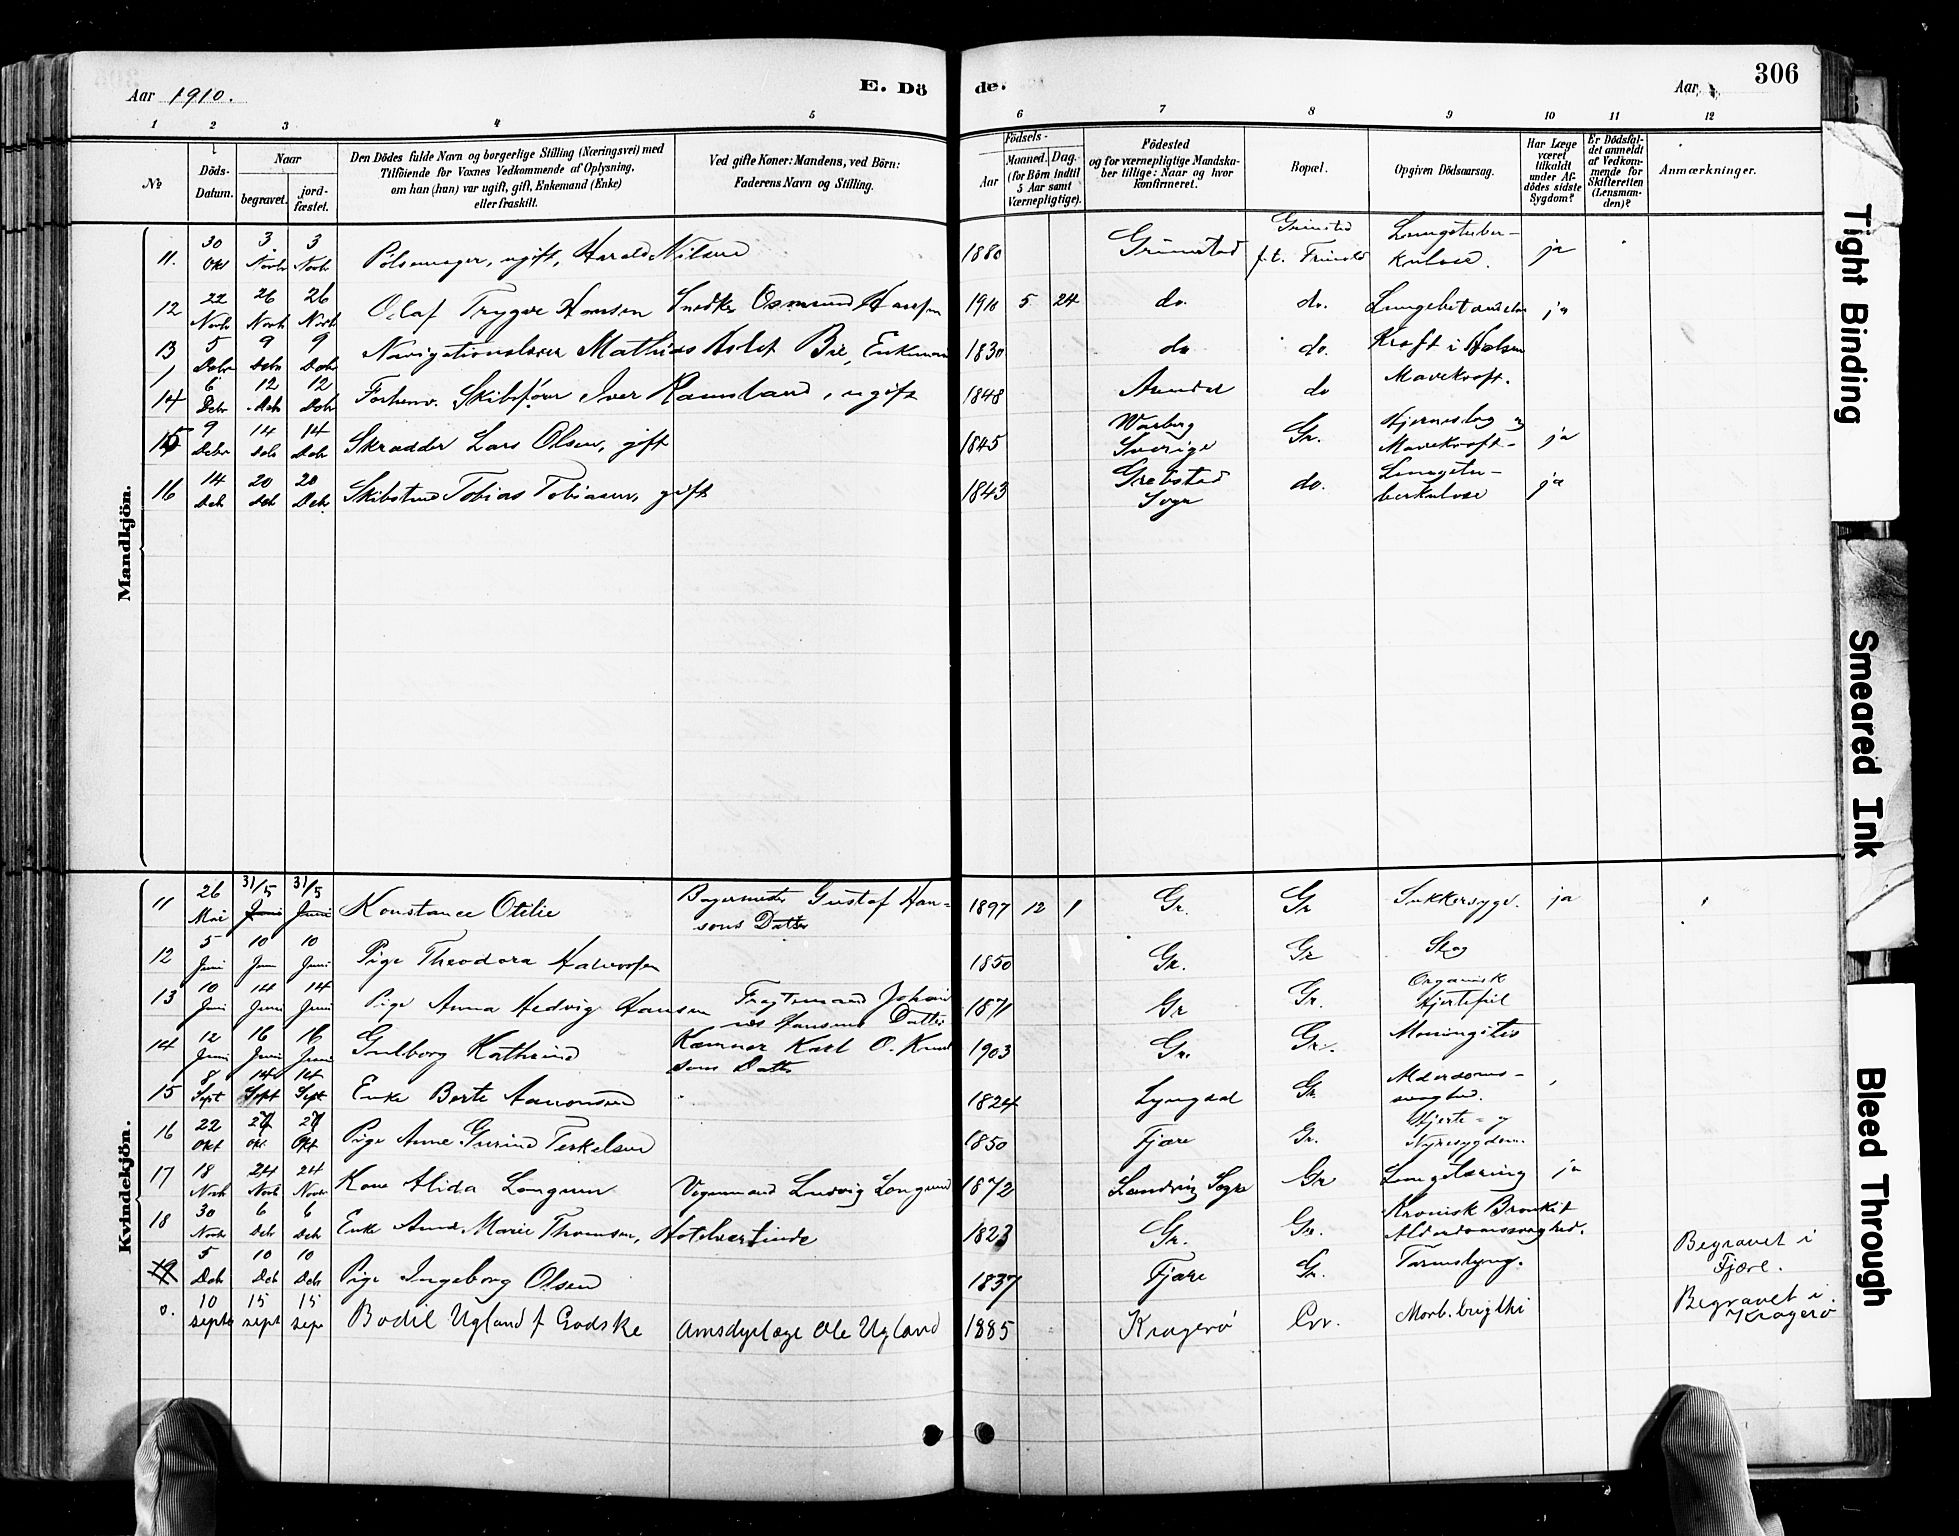 306
Aar 1910.
E. Dö
de.
Aar
1 2 3 4 5 6 7 8 9 10 11 12
No
Döds-
Datum.
Naar
begravet.
jord-
fæstet.
Den Dödes fulde Navn og borgerlige Stilling (Næringsvei) med
Tilföiende for Voxnes Vedkommende af Oplysning,
om han (hun) var ugift, gift, Enkemand (Enke)
eller fraskilt.
Ved gifte Koner: Mandens, ved Börn:
Faderens Navn og Stilling.
Födsels-
Aar
Maaned. Dag.
(for Börn indtil
5 Aar samt
Værnepligtige).
Födested
og for værnepligtige Mandska-
ber tillige: Naar og hvor
konfirmeret.
Bopæl.
Opgiven Dödsaarsag.
Har Læge
været
tilkaldt
under Af-
dödes sidste
Sygdom?
Er Dödsfal-
det anmeldt
af Vedkom-
mende for
Skifteretten
(Lensman-
den)?
Anmærkninger.
Mandkjön.
11. 30 Okt 3. Novbr 3 Novbr Pölsemager, ugift, Harald Nilsen 1880 Grimstad Grimstad f.t. Lungetuber-
kulose. ja
12 22 Novb 26 Novb 26 Novb Olaf Trygve Hansen Snedker Osmund Hansen 1910 5 24 do. do. ja
13 5 Debr 9 Debr 9 Debr Navigationslærer Mathias Aslef Bie, Enkemand 1830 do do. Kræft i Halsen
14 6 Debr 12 Deb 12 Debr Forhenv. Skibsfører Iver Ramsland, ugift 1848 Arendal do Mavekræft.
15 9 Debr 14 Deb 14 Deb Skrædder Lars Olsen, gift 1845 Warberg
Sverige Gr. Hjerneslag og
Mavekræft- ja
16 14 Deb 20 Deb 20 Deb Tobias Tobiasen, gift 1843 Grebstad
Sogn do. Lungetu-
berkulose ja
Kvindekjön.
11 26 Mai 31/5 Juni 31/5 Juni Konstance Otilie Bagermester Gustaf Han-
sens Datter 1897 12 1 Gr. Gr Sukkersyge. ja
12 5 Juni 10 Juni 10 Juni Pige Theodora Halvorsen 1850 Gr. Gr Slag
13 10 Juni 14 Juni 14 Juni Pige Anna Hedvig Hansen Fragtemand Johan
nes Hansens Datter 1871 Gr Gr. Organisk
Hjertefeil
14 12 Juni 16 Juni 16 Juni Gulborg Kathrine Kæmner Karl O. Knud
sens Datter 1903 Gr. Gr. Meningitis
15 8 Sept 14 Sept 14 Sept Enke Berte Aanonsen 1824 Lyngdal Gr. Alderdoms-
svaghed.
16 22 Okt 27 Okt 27 Okt Pige Anne Gurine Terkelsen 1850 Fjære Gr. Hjerte- og
Nyresygdom.
17 18 Novb 24 Novb 24 Novbr Kone Alida Longum Vognmand Ludvig Longum 1872 Landvig Sogn Gr ja
18 30 Novbr 6 Deb 6 Deb Enke Anne Marie Thomsen, Hotelvertinde 1823 Gr. Gr. Kronisk Bronkit
Alderdomssvaghed.
19 5 Deb 10 Deb 10 Deb Pige Ingeborg Olsen 1837 Fjære Gr. Tarmslyng. Begravet i
Fjære.
o. 10 septb 15 sept 15 sept Bodil Ugland f Godske Amsdyrlæge Ole Ugland 1885 Kragerø Grr. Morb. brigthi Begravet i
Kragerø
Tight Binding
Smeared Ink
Bleed Through